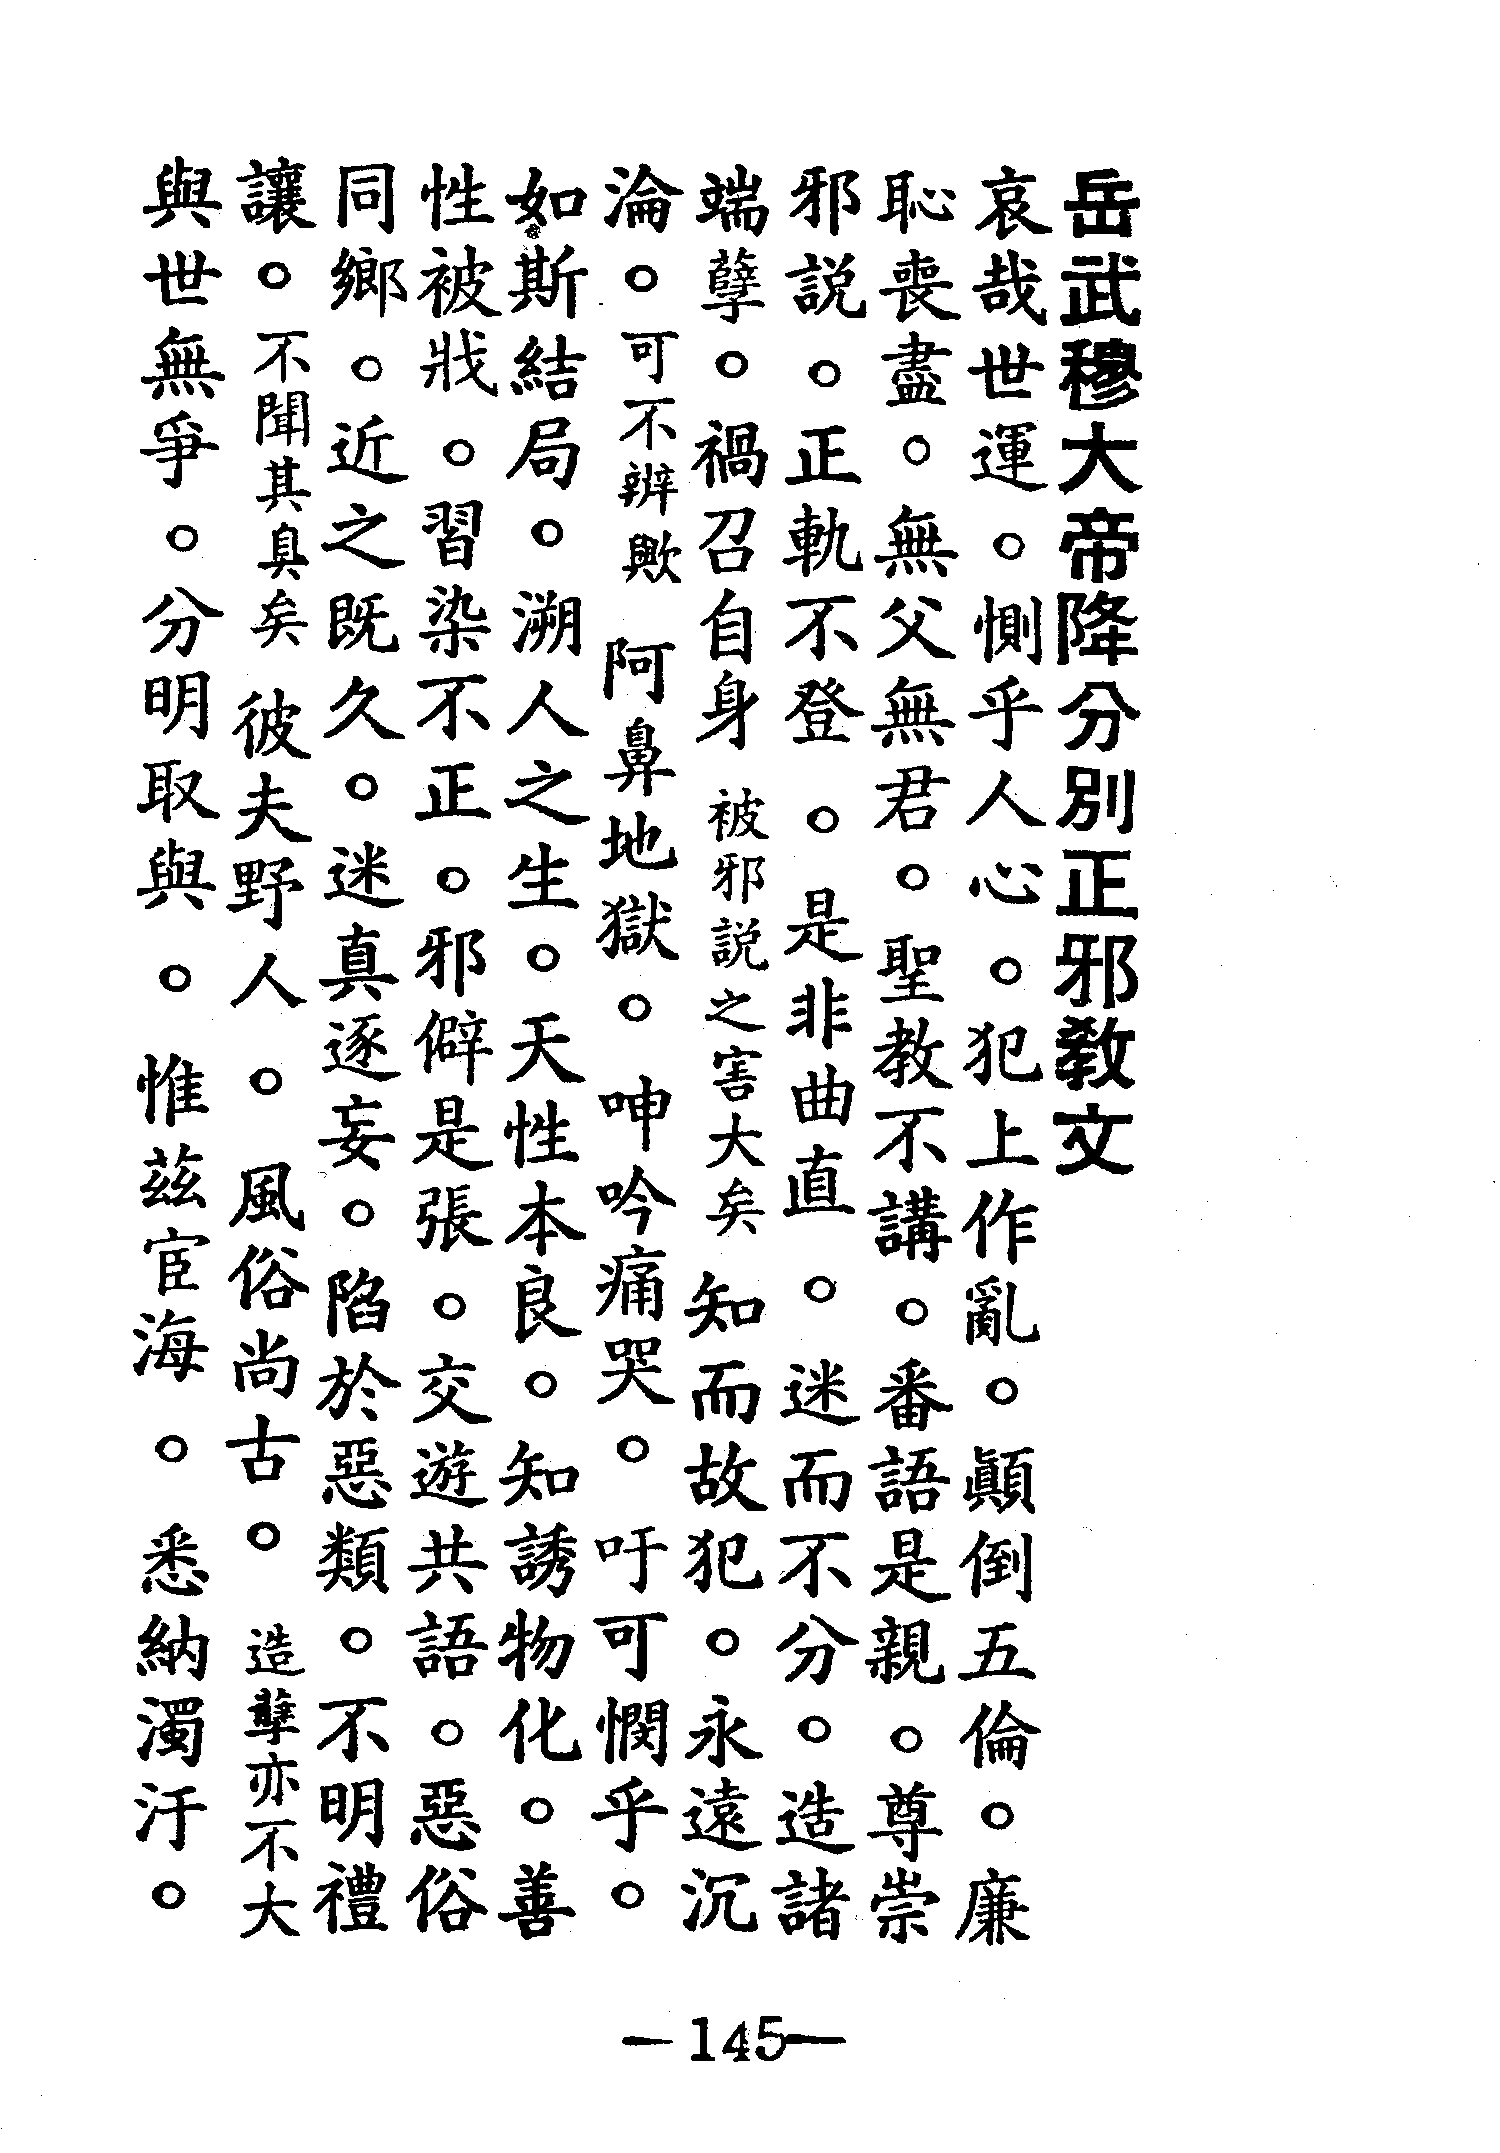 岳武穆大帝降分別正邪教文
哀哉世運。惻乎人心。犯上作亂。顚倒五倫。廉
恥喪盡。無父無君。聖教不講。番語是親。尊崇
邪説。正軌不登。是非曲直。迷而不分。造諸
端孽。禍召自身 被邪説之害大矣 知而故犯。永遠沉
淪。可不辨歟 阿鼻地獄。呻吟痛哭。吁可憫乎。
如斯結局。溯人之生。天性本良。知誘物化。善
性被戕。習染不正。邪僻是張。交遊共語。惡俗
同鄉。近之既久。迷真逐妄。陷於惡類。不明禮
讓。不聞其臭矣 彼夫野人。風俗尚古。造孽亦不大
與世無爭。分明取與。惟茲宦海。悉納濁汙。
—145—